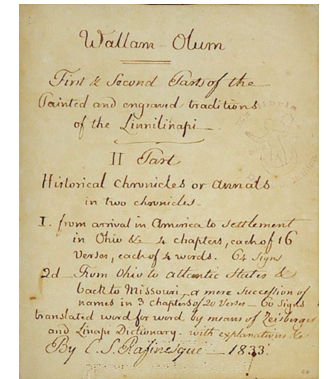 Wallam-Olum
First & Second Parts of the
Painted and engraved traditions
of the Linnilinapi
II Part
Historical Chronicles or annals
in two chronicles.
I. from arrival in America to settlement
in Ohio &c 4 chapters, each of 16
Verses, each of 4 words. 64 Signs
2d From Ohio to atlantic States &
back to Missouri, a mere succession of
names in 3 chapters of 20 Verses 60 Signs
translated word for word by means of Zeisberger
and Linapi Dictionary. with explanations &c
By C. S. Rafinesque 1833